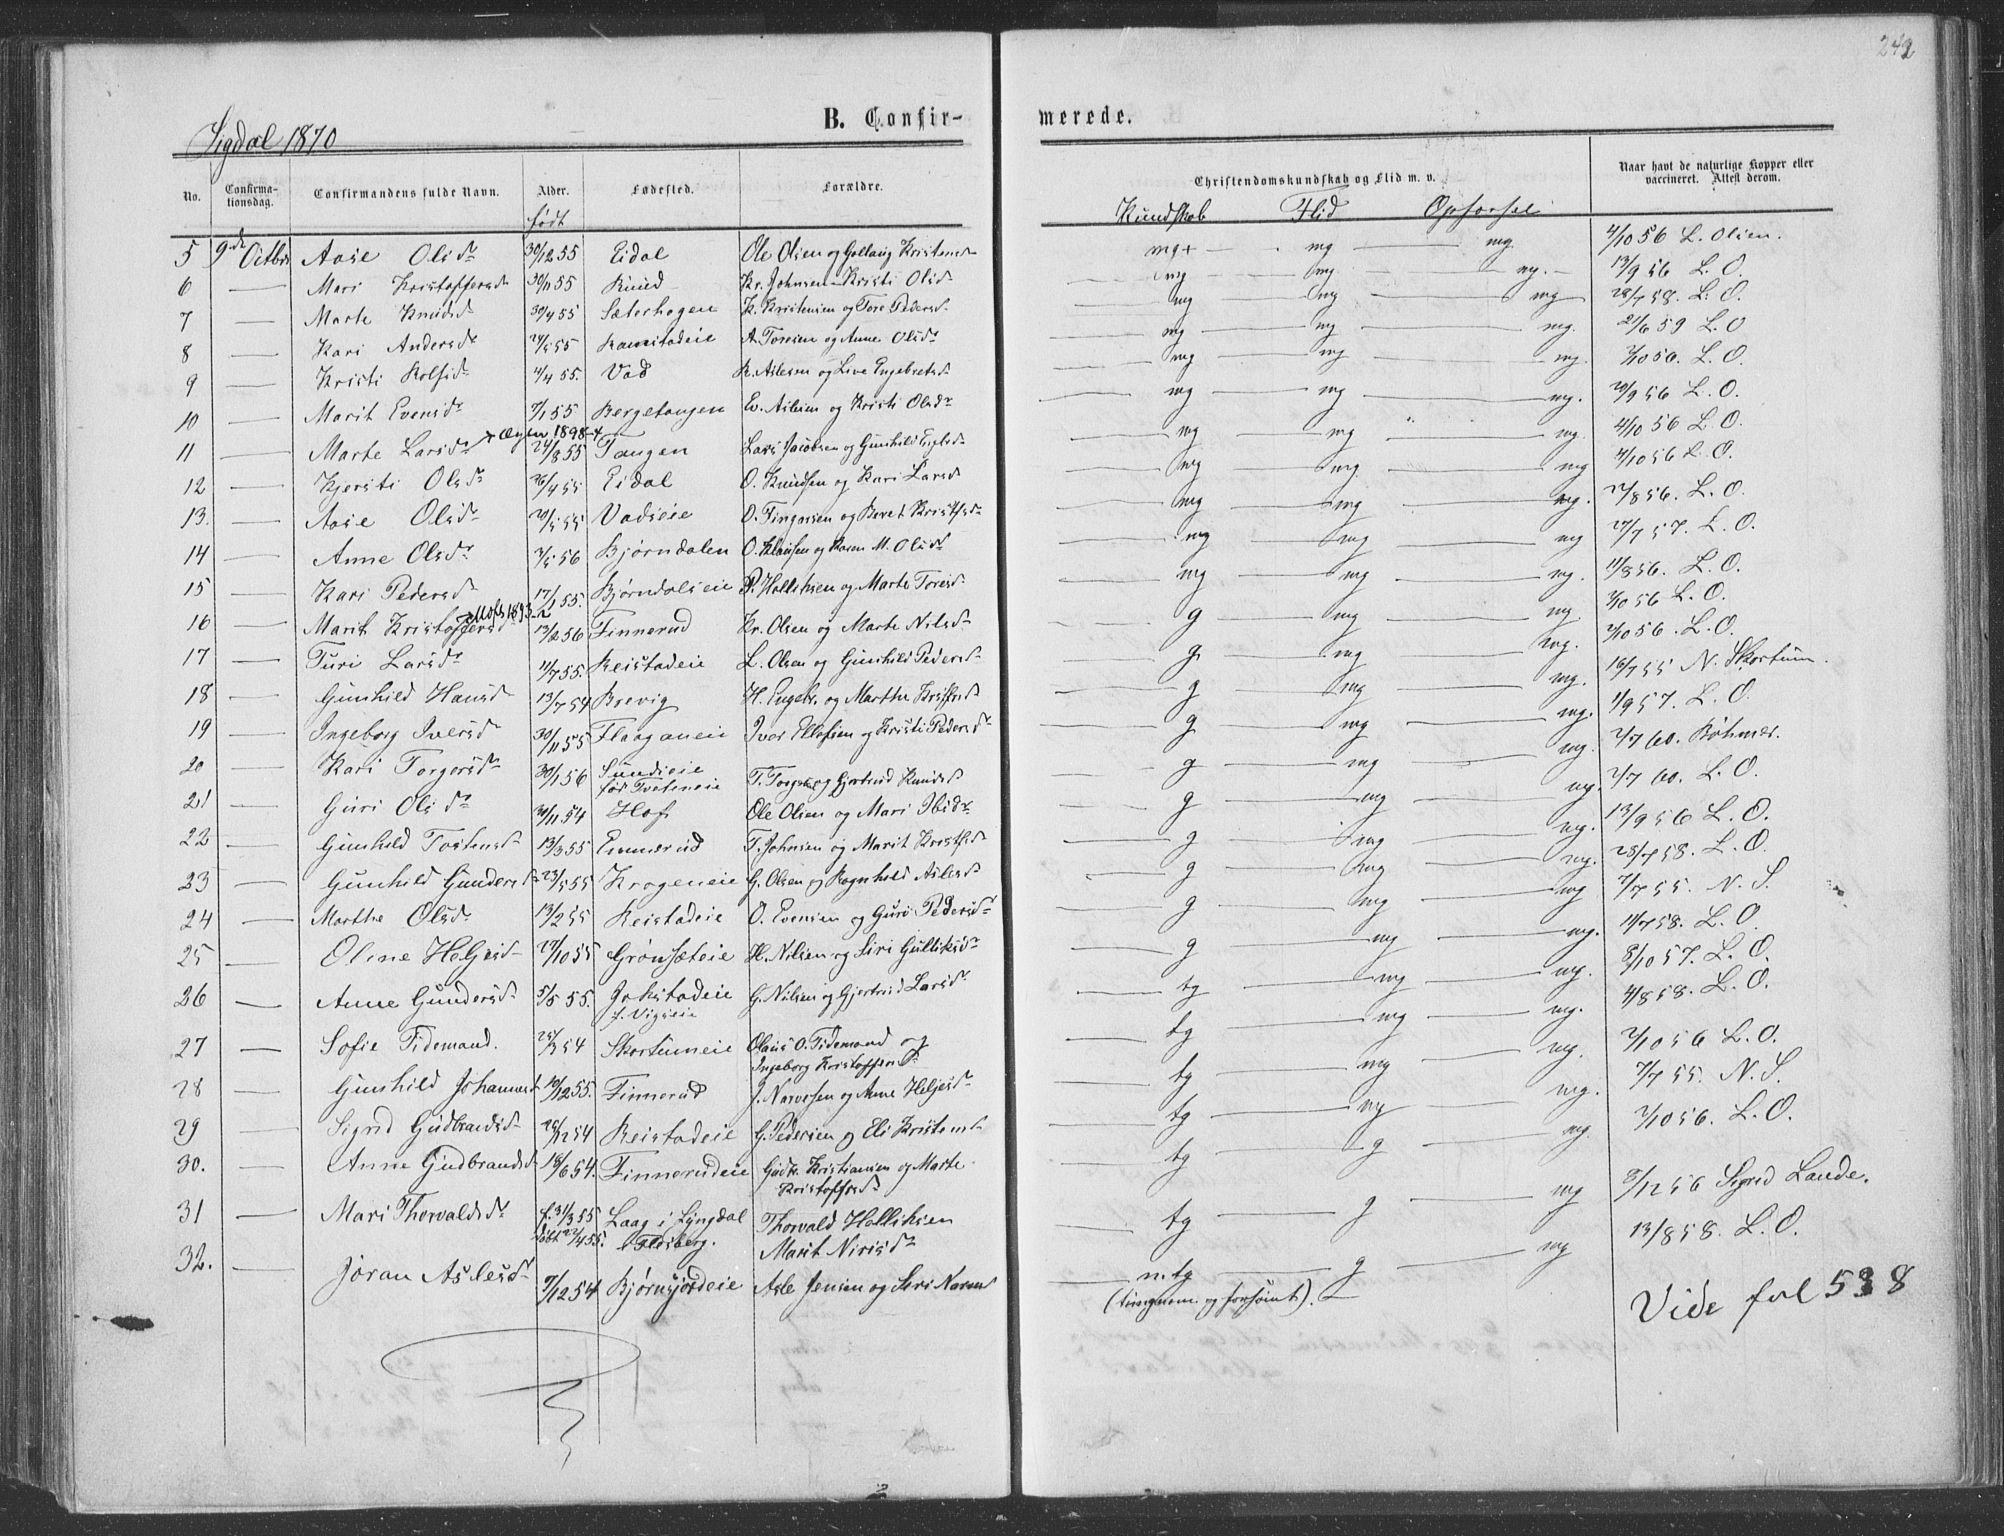 242
Sigdal 1870
B. Confir- merede.
No. Confirma-tionsdag. Confirmandens fulde Navn. Alder. Fødested. Forældre. Christendomskundskab og Flid m. v. Naar havt de naturlige Kopper eller vaccineret. Attest derom.
født Kundskab Flid Opførsel
5 9de Octbr Aase Olsdr 30/12 55 Eidal Ole Olsen og Gollaug Kristensd mg+ mg mg 4/10 56 L. Olsen.
6 Mari Kristoffersd 30/11 55 Kr. Johnsen Kristi Olsd mg mg mg. 13/9 56 L. O.
7 Marte Knudsd 30/4 55 Sæterhagen K. Kristensen og Tore Pedersd. mg mg mg 28/7 58. L. O.
8 Kari Andersdr Ramstadeie A. Toresen og Anne Olsdr mg mg mg. 21/6 59 L. O
9 Kristi Rolfsdr 4/4 55. Vad R. Aslesen og Live Engebretsd. mg mg mg. L. O.
10 Marit Evensdr 7/1 55 Bergetangen Ev. Aslesen og Kristi Olsdr mg mg mg. 20/9 56 L. O.
11 Marte Larsdr 1898 24/8 55 Tangen Lars Jacobsen og Gunhild mg mg mg. 4/10 56 L. O.
12 Kjersti Olsdr 26/4 55 Eidal O. Knudsen og Kari Larsd mg mg mg 4/10 56 L. O.
13. Aase Olsdr Vadseie O. Fingarsen og Beret Kristfsdr mg mg mg. 27/8 56. L. O.
14 Anne Olsdr 2/5 56 Bjørndalen O. Klausen og Karen M. Olsdr mg mg mg 27/7 57. L. O.
15 Kari Pedersd 17/1 55. Bjørndalseie P. Helliksen og Marte Toresd. mg mg mg. 11/8 56. L. O.
16 Marit Kristoffersd 1893 13/2 56 Finnerud Kr. Olsen og Marte Nilsdr g mg mg L. O.
17 Turi Larsdr 11/7 55. Reistadeie L. Olsen og Gunhild Pedersd. g mg mg. L. O.
18 Gunhild Hansd 13/7 54 Brevig H. Engebr. og Marthe g mg mg. 16/7 55 N. Skartum.
19 Ingeborg Iversdr 30/11 55 Flaaganeie Iver Ellefsen og Kristi Pedersdr g mg mg. 1/9 57. L. O.
20 Kari Torgersdr 30/1 56 Sundseie før Tveteneie T. Torgersen og Gjertrud Knudsd g mg mg. 2/7 60. Bøhmer.
21 Guri Olsdr 30/11 54 Hof Ole Olsen og Mari Ibsdr g mg mg. 2/7 60. L. O.
22 Gunhild Tostensdr 13/3 55 Emmerud T. Johnsen og Marit Kristfsd g mg mg. 13/9 56 L. O.
23 Gunhild Gundersd 23/5 55 Krageneie G. Olsen og Ragnhild Aslesd g mg mg. 28/7 58. L. O.
24 Marthe Olsd 13/2 55 Reistadeie O. Evensen og Guro Pedersdr g mg mg 7/7 55. N. S.
25 Oline Helgesdr 27/10 55 Grønsæteie H. Nilsen og Siri Gulliksdr g mg mg. 11/7 58. L. O.
26 Anne Gundersdr 5/5 55. Jokstadeie f. Vigseie G. Nilsen og Gjertrud Larsd tg mg mg. 8/10 57. L. O.
27 Sofie Tidemand. Skartumeie Olaus O. Tidemand og Ingeborg Kristoffersd tg mg mg. 4/8 58. L. O.
28 Gunhild Johannesd 10/12 55. Finnerud J. Narvesen og Anne Helgesdr tg mg mg. 2/10 56 L. O.
29 Sigrid Gudbrandsdr Reistadeie G. Pedersen og Eli Kristensd tg mg mg. 7/7 55. N. S.
30. Anne Gudbrandsd 18/6 54. Finnerudeie Gudbr. Kristiansen og Marte Kristoffersd tg g mg. 2/10 56. L. O.
31 Mari Thorvaldsdr f. 31/3 55 døbt 22/4 55. Laag i Lyngdal Flesberg. Thorvald Helliksen Marit Nirisdr tg g mg 8/12 56 Sigrid Lande.
32. Jøran Aslesdr 7/12 54 Bjørnsjordeie Asle Jensen og Siri n. tg g mg 13/8 58. L. O.
(tungnem og forsømt).
Vide fol 538